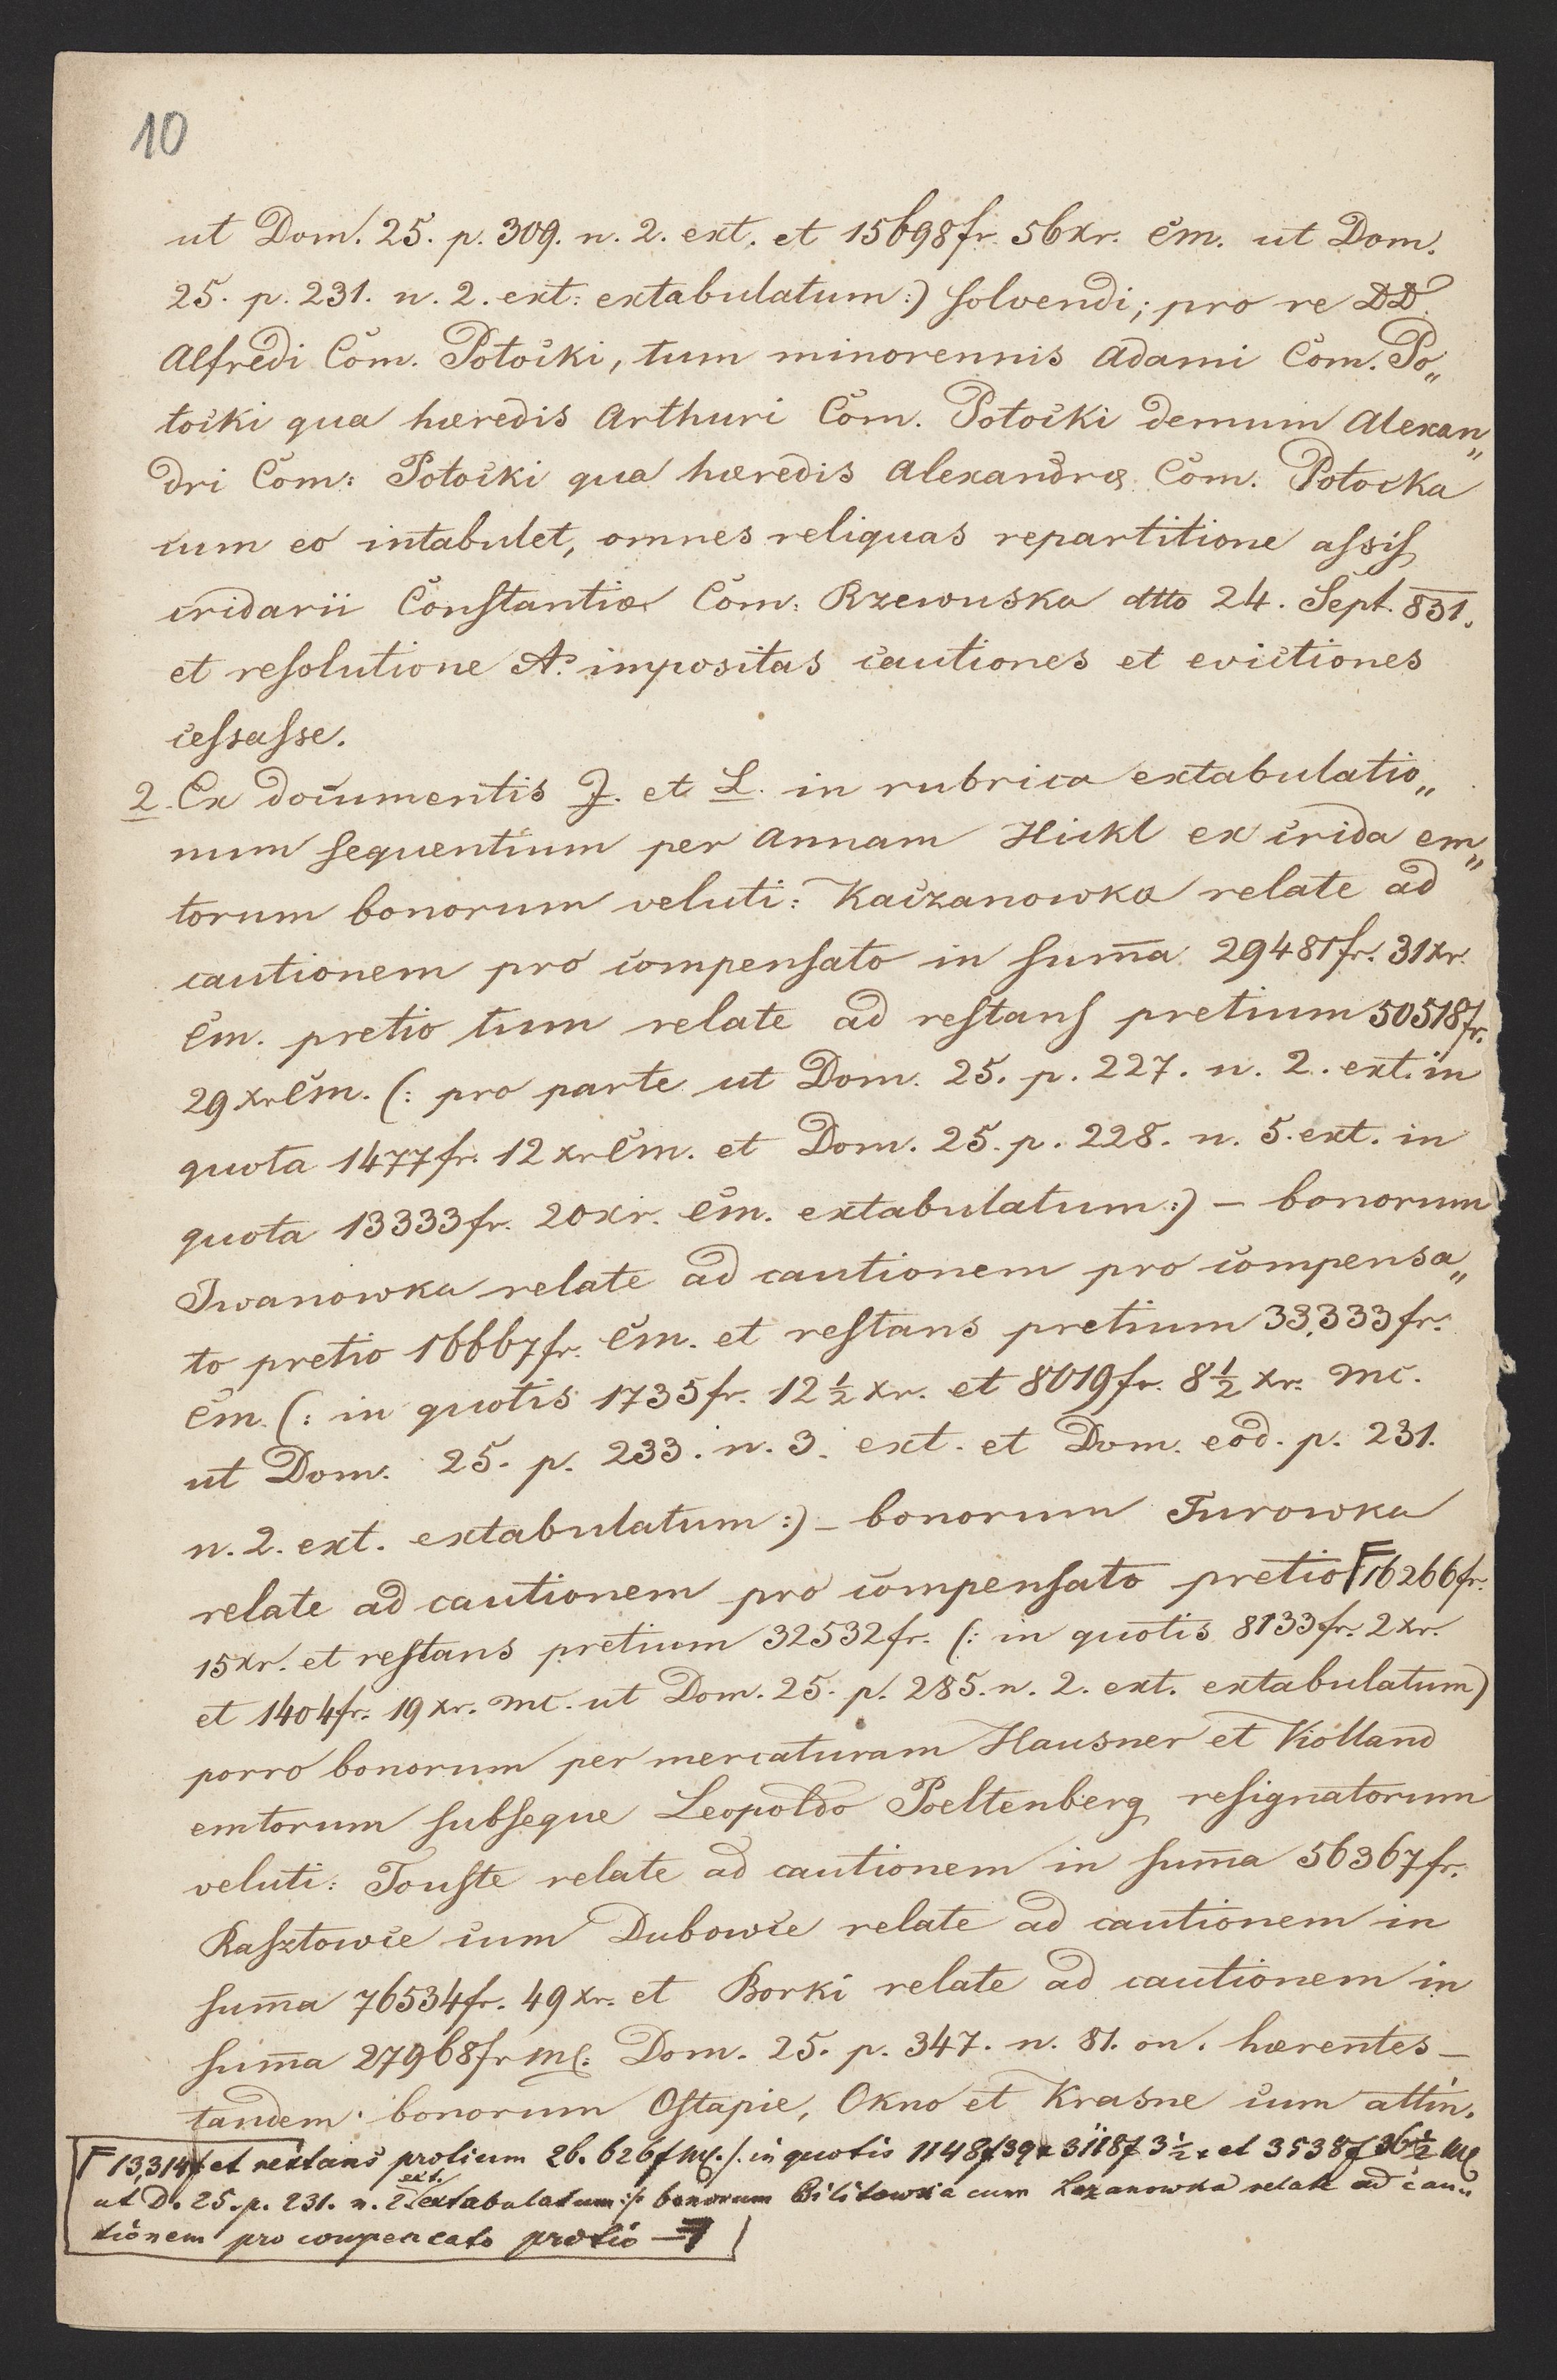 10
ut Dom. 25. p. 309. n. 2. ext. et 15698 fr. 56 xr. Cm. ut Dom.
25. p. 231. n. 2. ext: extabulatum:) solvendi; pro re DD.
Alfredi Com. Potocki, tum minorennis Adami Com. Po„
tocki qua hæredis Arthuri Com. Potocki demum Alexan„
dri Com: Potocki qua hæredis Alexandræ Com. Potocka
cum eo intabulet, omnes reliquas repartitione assis
cridarii Constantiæ Com: Rzewuska dtto 24. Sept. 831.
et resolutione A. impositas cautiones et evictiones
cessasse.
2. Ex documentis J. et L. in rubrica extabulatio„
num sequentium per Annam Hickl ex crida em„
torum bonorum veluti: Kaczanowka relate ad
cautionem pro compensato in summa 29481 fr. 31 xr.
Cm. pretio tum relate ad restans pretium 50518 fr.
29 xr Cm. (: pro parte ut Dom. 25. p. 227. n. 2. ext. in
quota 1477 fr. 12 xr Cm. et Dom. 25. p. 228. n. 5. ext. in
quota 13333 fr. 20 xr. Cm. extabulatum:) – bonorum
Iwanowka relate ad cautionem pro compensa„
to pretio 16667 fr. Cm. et restans pretium 33,333 fr.
Cm. (: in quotis 1735 fr. 12 ½ xr. et 8019 fr. 8 ½ xr. mc.
ut Dom. 25. p. 233. n. 3. ext. et Dom. eod. p. 231.
n. 2. ext. extabulatum:) – bonorum Turowka
relate ad cautionem pro compensato pretio F 16266 fr.
15 xr. et restans pretium 32532 fr. (: in quotis 8133 fr. 2 xr.
et 1404 fr. 19 xr. mc. ut Dom. 25. p. 285. n. 2. ext. extabulatum)
porro bonorum per mercaturam Hausner et Violland
emtorum subseque Leopoldo Poeltenberg resignatorum
veluti: Touste relate ad cautionem in summa 56367 fr.
Rasztowce cum Dubowce relate ad cautionem in
summa 76534 fr. 49 xr. et Borki relate ad cautionem in
summa 27968 fr mc: Dom. 25. p. 347. n. 81. on. hærentes –
tandem bonorum Ostapie, Okno et Krasne cum attin.
F 13,314 f et restans protium 26.626 f mc. /. in quotis 1148 f 39 x 3118 f 3 ½ x et 3538 f 36 ½ mc
ut D. 25. p. 231. n. 2 ext. extabulatum :/ bonorum Bilitowka cum Lezanowka relate ad cau„
tionem pro compencato protio –